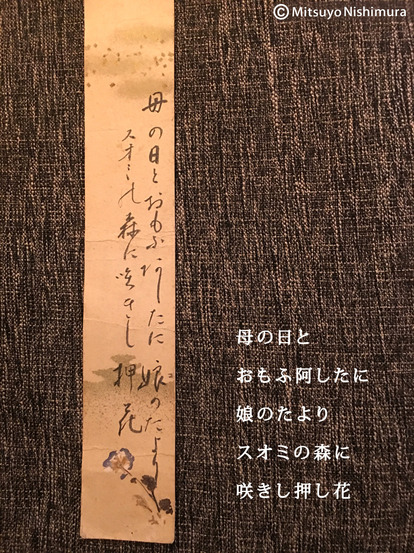 © Mitsuyo Nishimura
母の日とおもふ阿したに 娘のたより
スオミの森に咲きし 押花
母の日と
おもふ阿したに
娘のたより
スオミの森に
咲きし押し花